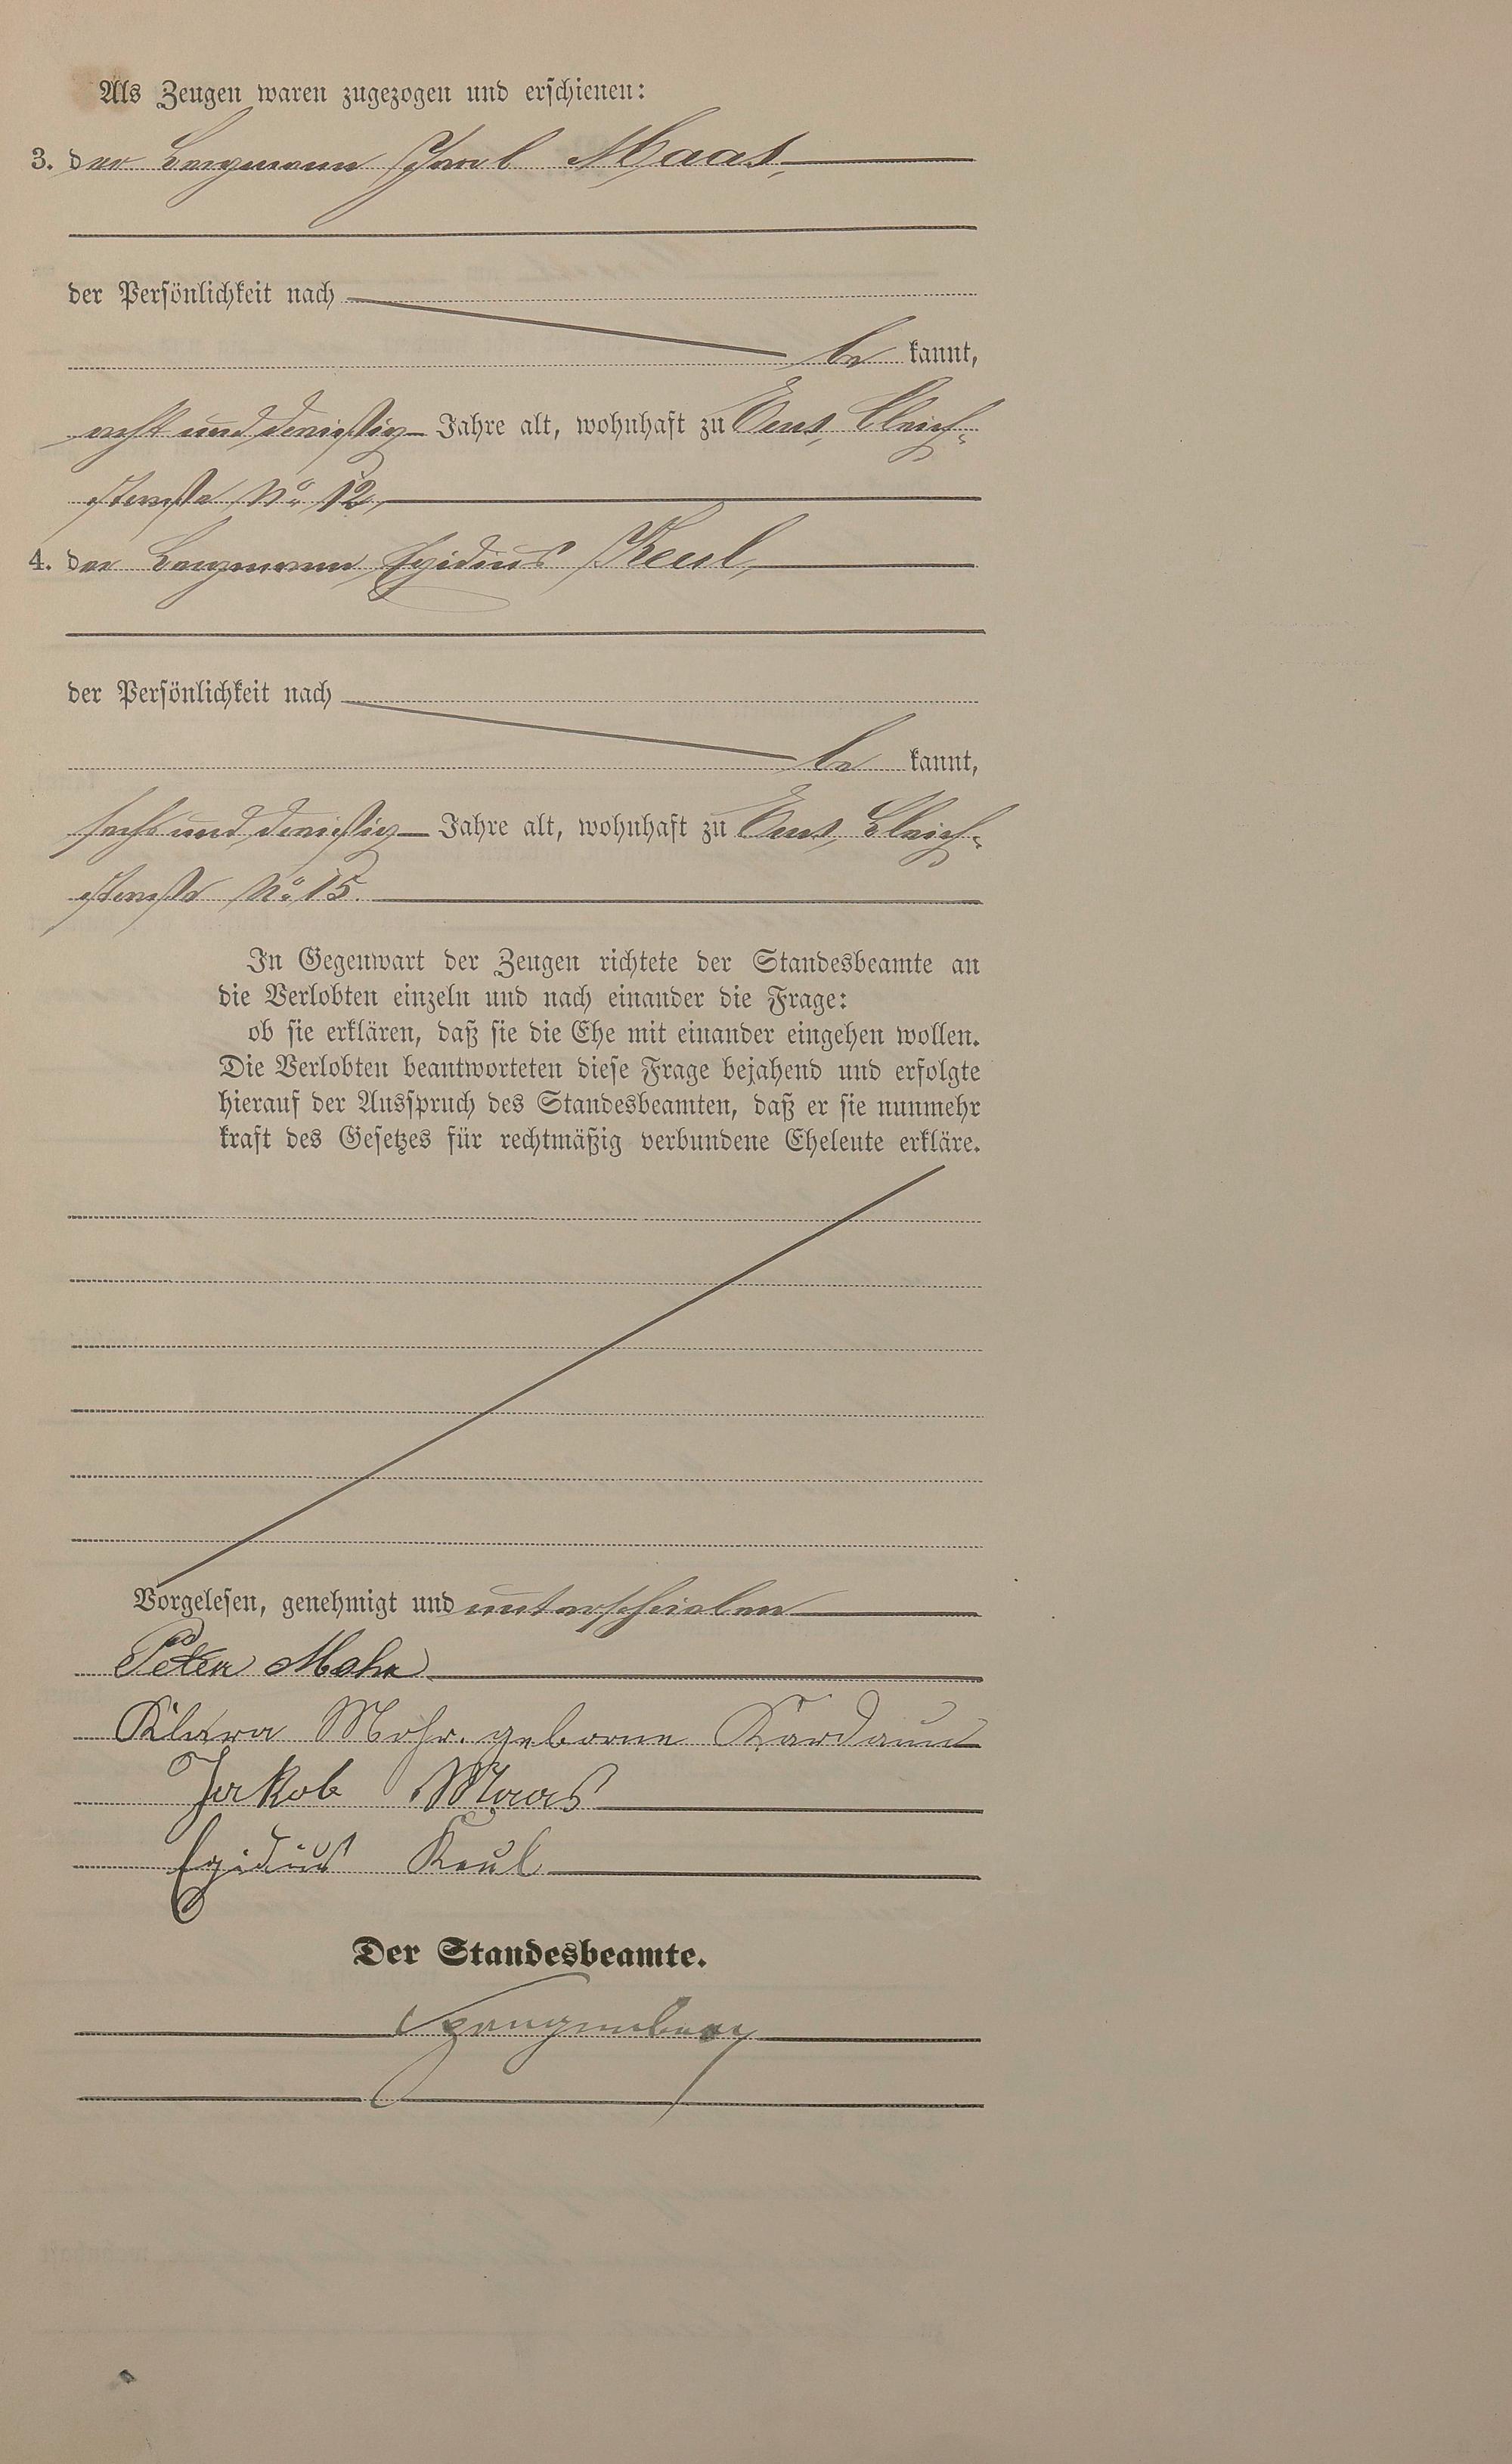 Als Zeugen waren zugezogen und erschienen:
3. der Bergmann Jacob Maas,
der Persönlichkeit nach
be kannt,
acht und dreißig Jahre alt, wohnhaft zu Ems, Bleich-
straße No. 12,
4. der Bergmann Egidius Keul,
der Persönlichkeit nach
be kannt,
sechs und dreißig Jahre alt, wohnhaft zu Ems, Bleich-
straße No. 15.
In Gegenwart der Zeugen richtete der Standesbeamte an
die Verlobten einzeln und nach einander die Frage:
ob sie erklären, daß sie die Ehe mit einander eingehen wollen.
Die Verlobten beantworteten diese Frage bejahend und erfolgte
hierauf der Ausspruch des Standesbeamten, daß er sie nunmehr
kraft des Gesetzes für rechtmäßig verbundene Eheleute erkläre.
Vorgelesen, genehmigt und unterschrieben
Peter Mohr
Klara Mohr. geborne Kardaun
Jakob Maas
Egidius Keul
Der Standesbeamte.